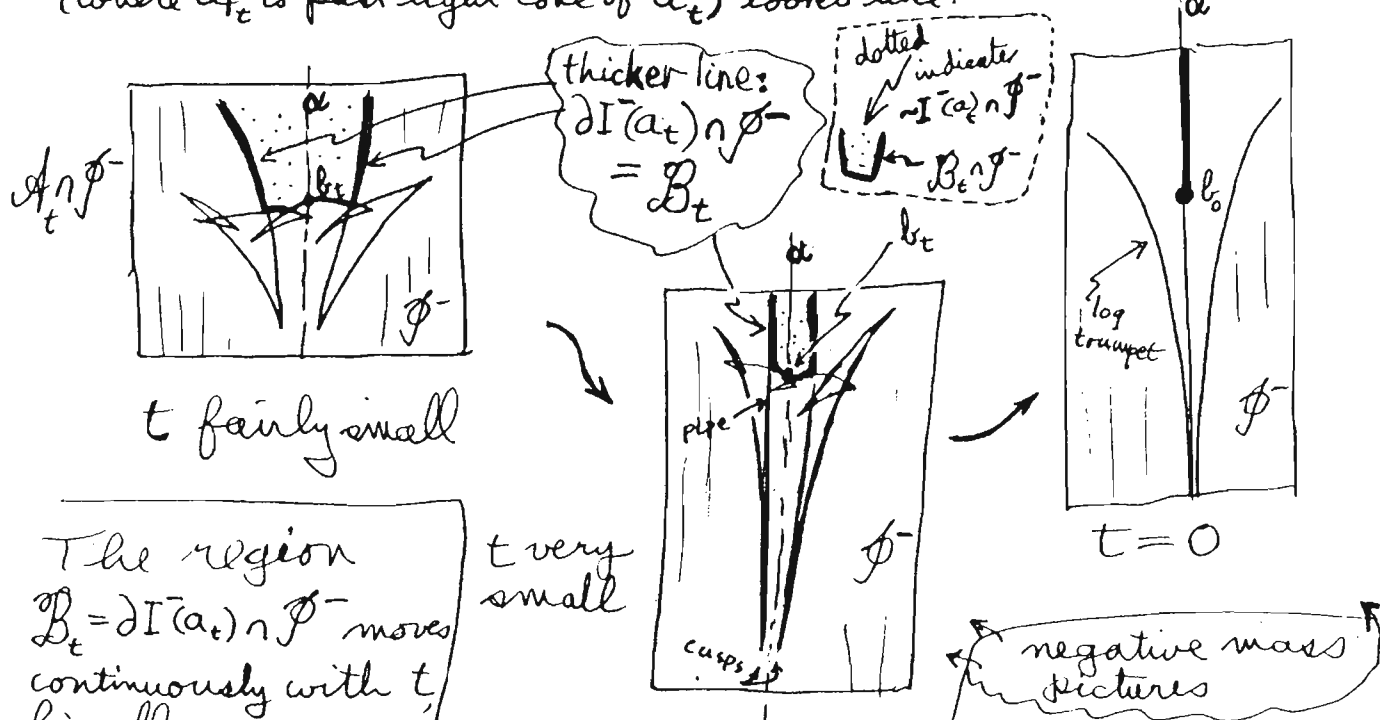 (where 𝒜t is past light cone of at) looks like:
α
thicker line:
∂I⁻(at) ∩ 𝓘⁻
= ℬt
dotted
indicates
~I⁻(at) ∩ 𝓘⁻
ℬt ∩ 𝓘⁻
α
b₀
log
trumpet
𝓘⁻
t = 0
𝒜t ∩ 𝓘⁻
α
bt
𝓘⁻
t fairly small
α
bt
pipe
𝓘⁻
cusps
t very
small
The region
ℬt = ∂I⁻(at) ∩ 𝓘⁻ moves
continuously with t,
negative mass
pictures